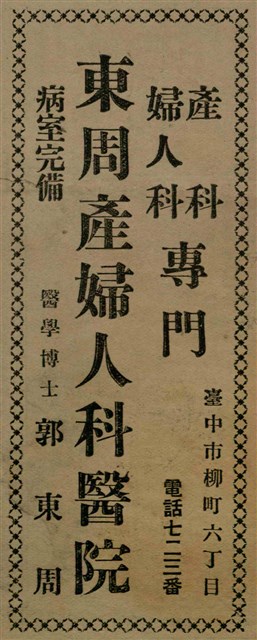 產科
婦人科
專門
臺中市柳町六丁目
電話七二三番
東周產婦人科醫院
病室完備
醫學博士 郭東周